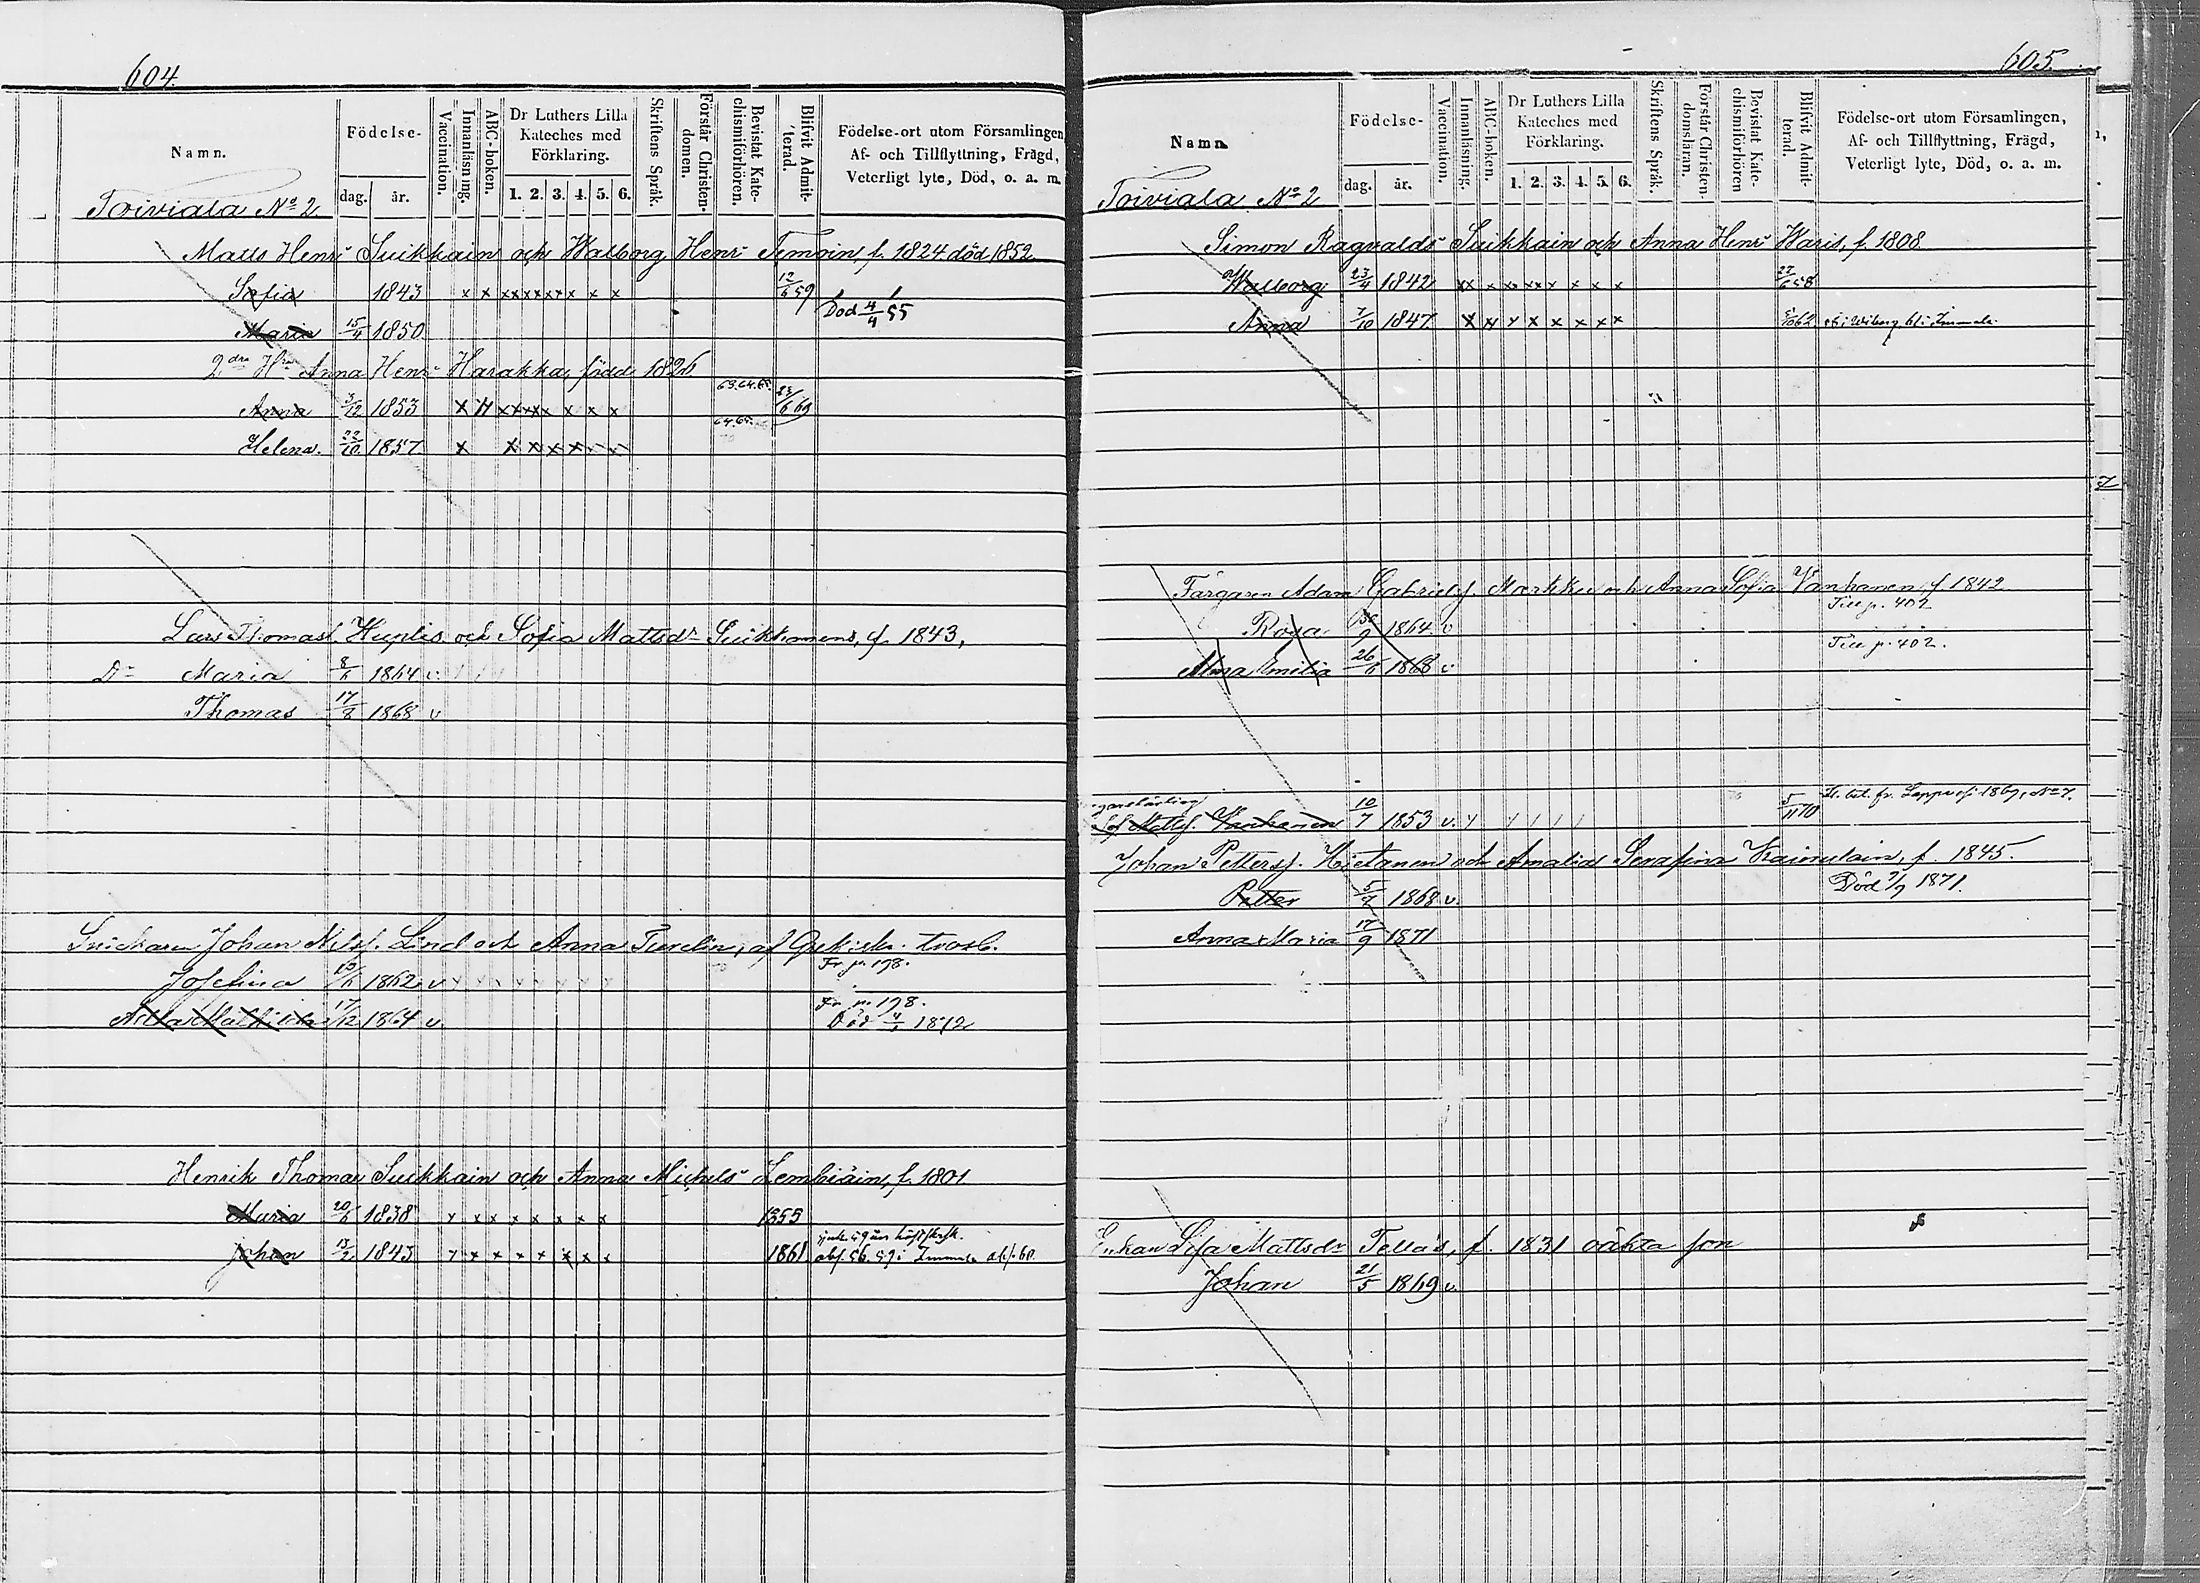 604.
Namn.
Födelse-
dag.
år.
Vaccination.
Innanläsning.
ABC-boken.
Dr Luthers Lilla
Kateches med
Förklaring.
1. 2. 3. 4. 5. 6.
Skriftens Språk.
Förstår Christen-
domen.
Bevistat Kate-
chismiförhören.
Blifvit Admit-
terad.
Födelse-ort utom Församlingen
Af- och Tillflyttning, Frägd,
Veterligt lyte, Död, o. a. m.
Toiviala No 2
Matts Henr Suikkain och Walborg Henr Temoin, f. 1824 död 1852
Sofia 1843 x x x x x x x x x x 12/6 59
Maria 15/4 1850 Död 4/4 55
2dra Hru Anna Henr Harakka, född 1826
Anna 3/12 1853 x x x x x x x x x 63.64.65. 23/6 69
Helena. 22/10 1857 x x x x x x x 64.65.
Lars Thomass. Huplis och Sofia Mattsdr Suikkanens, f. 1843,
Dr Maria 8/6 1864 v.
Thomas 17/8 1868 v
Johan Nilss. Lind och Anna Turelin, af Grekiska trosb.
Josefina 1862 v Fr p. 198.
Mathilda 17/12 1864 v. Fr p. 198.
Död 1872
Henrik Thomas Suikkain och Anna Michels Lembiäin, f. 1801
Maria 20/6 1838 x x x x x x x x 1855
Johan 13/2 1843 x x x x x x x x 1861.
605.
Namn.
Födelse-
dag.
år.
Vaccination.
Innanläsning.
ABC-boken.
Dr Luthers Lilla
Kateches med
Förklaring.
1. 2. 3. 4. 5. 6.
Skriftens Språk.
Förstår Christen-
domsläran.
Bevistat Kate-
chismiförhören
Blifvit Admit-
terad.
Födelse-ort utom Församlingen,
Af- och Tillflyttning, Frägd,
Veterligt lyte, Död, o. a. m.
Toiviala No 2
Simon Ragvalds Suikkain och Anna Henr Waris, f. 1808
Walborg 23/4 1842 x x x x x x x x x 27/6 58
Anna 7/10 1847 x x x x x x x x
Färgaren Adam Gabrielss. Markku och Anna Sofia Vanhanen, f. 1842
Till p. 402
Rosa 1864 v
Till p. 402.
Alma Emilia 26/6 1868 v.
Mattss. Vanhanen 10/7 1853 v. 5/11 70
Johan Petterss. Hietanen och Amalia Serafina Kainulain, f. 1845.
Petter 5/7 1868 v. Död 7/9 1871.
Anna Maria 17/9 1871
Enkan Lisa Mattsdr Tellas, f. 1831 oäkta son
Johan 21/5 1869 v.
7